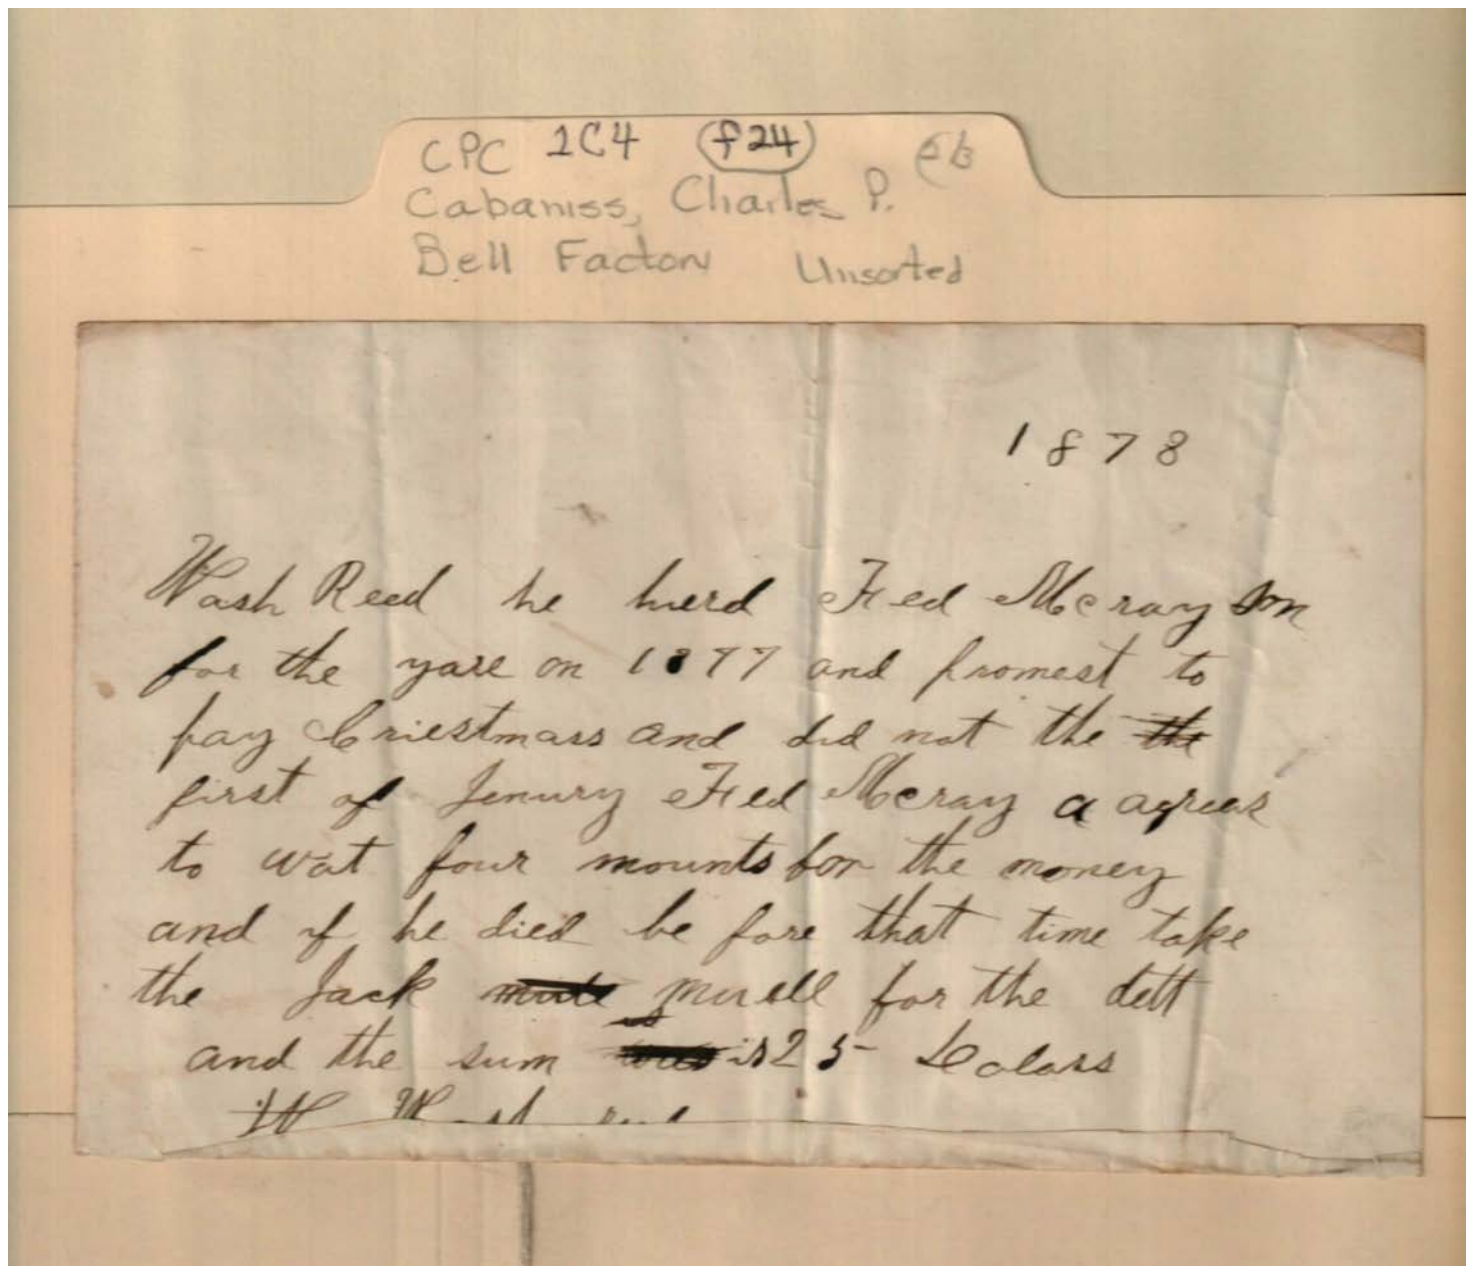 CPC 1C4 f24
Cabaniss, Charles P.
Bell Factory Unsorted
1878
Wash Reed he hierd Fred Mcray son
for the yare on 1877 and promest to
pay Criestmass and did not the the
first of Jenury Fred Mcray a agrees
to wat four mounts for the money
and if he died be fore that time take
the Jack mule muell for the dett
and the sum is 25 Dolars